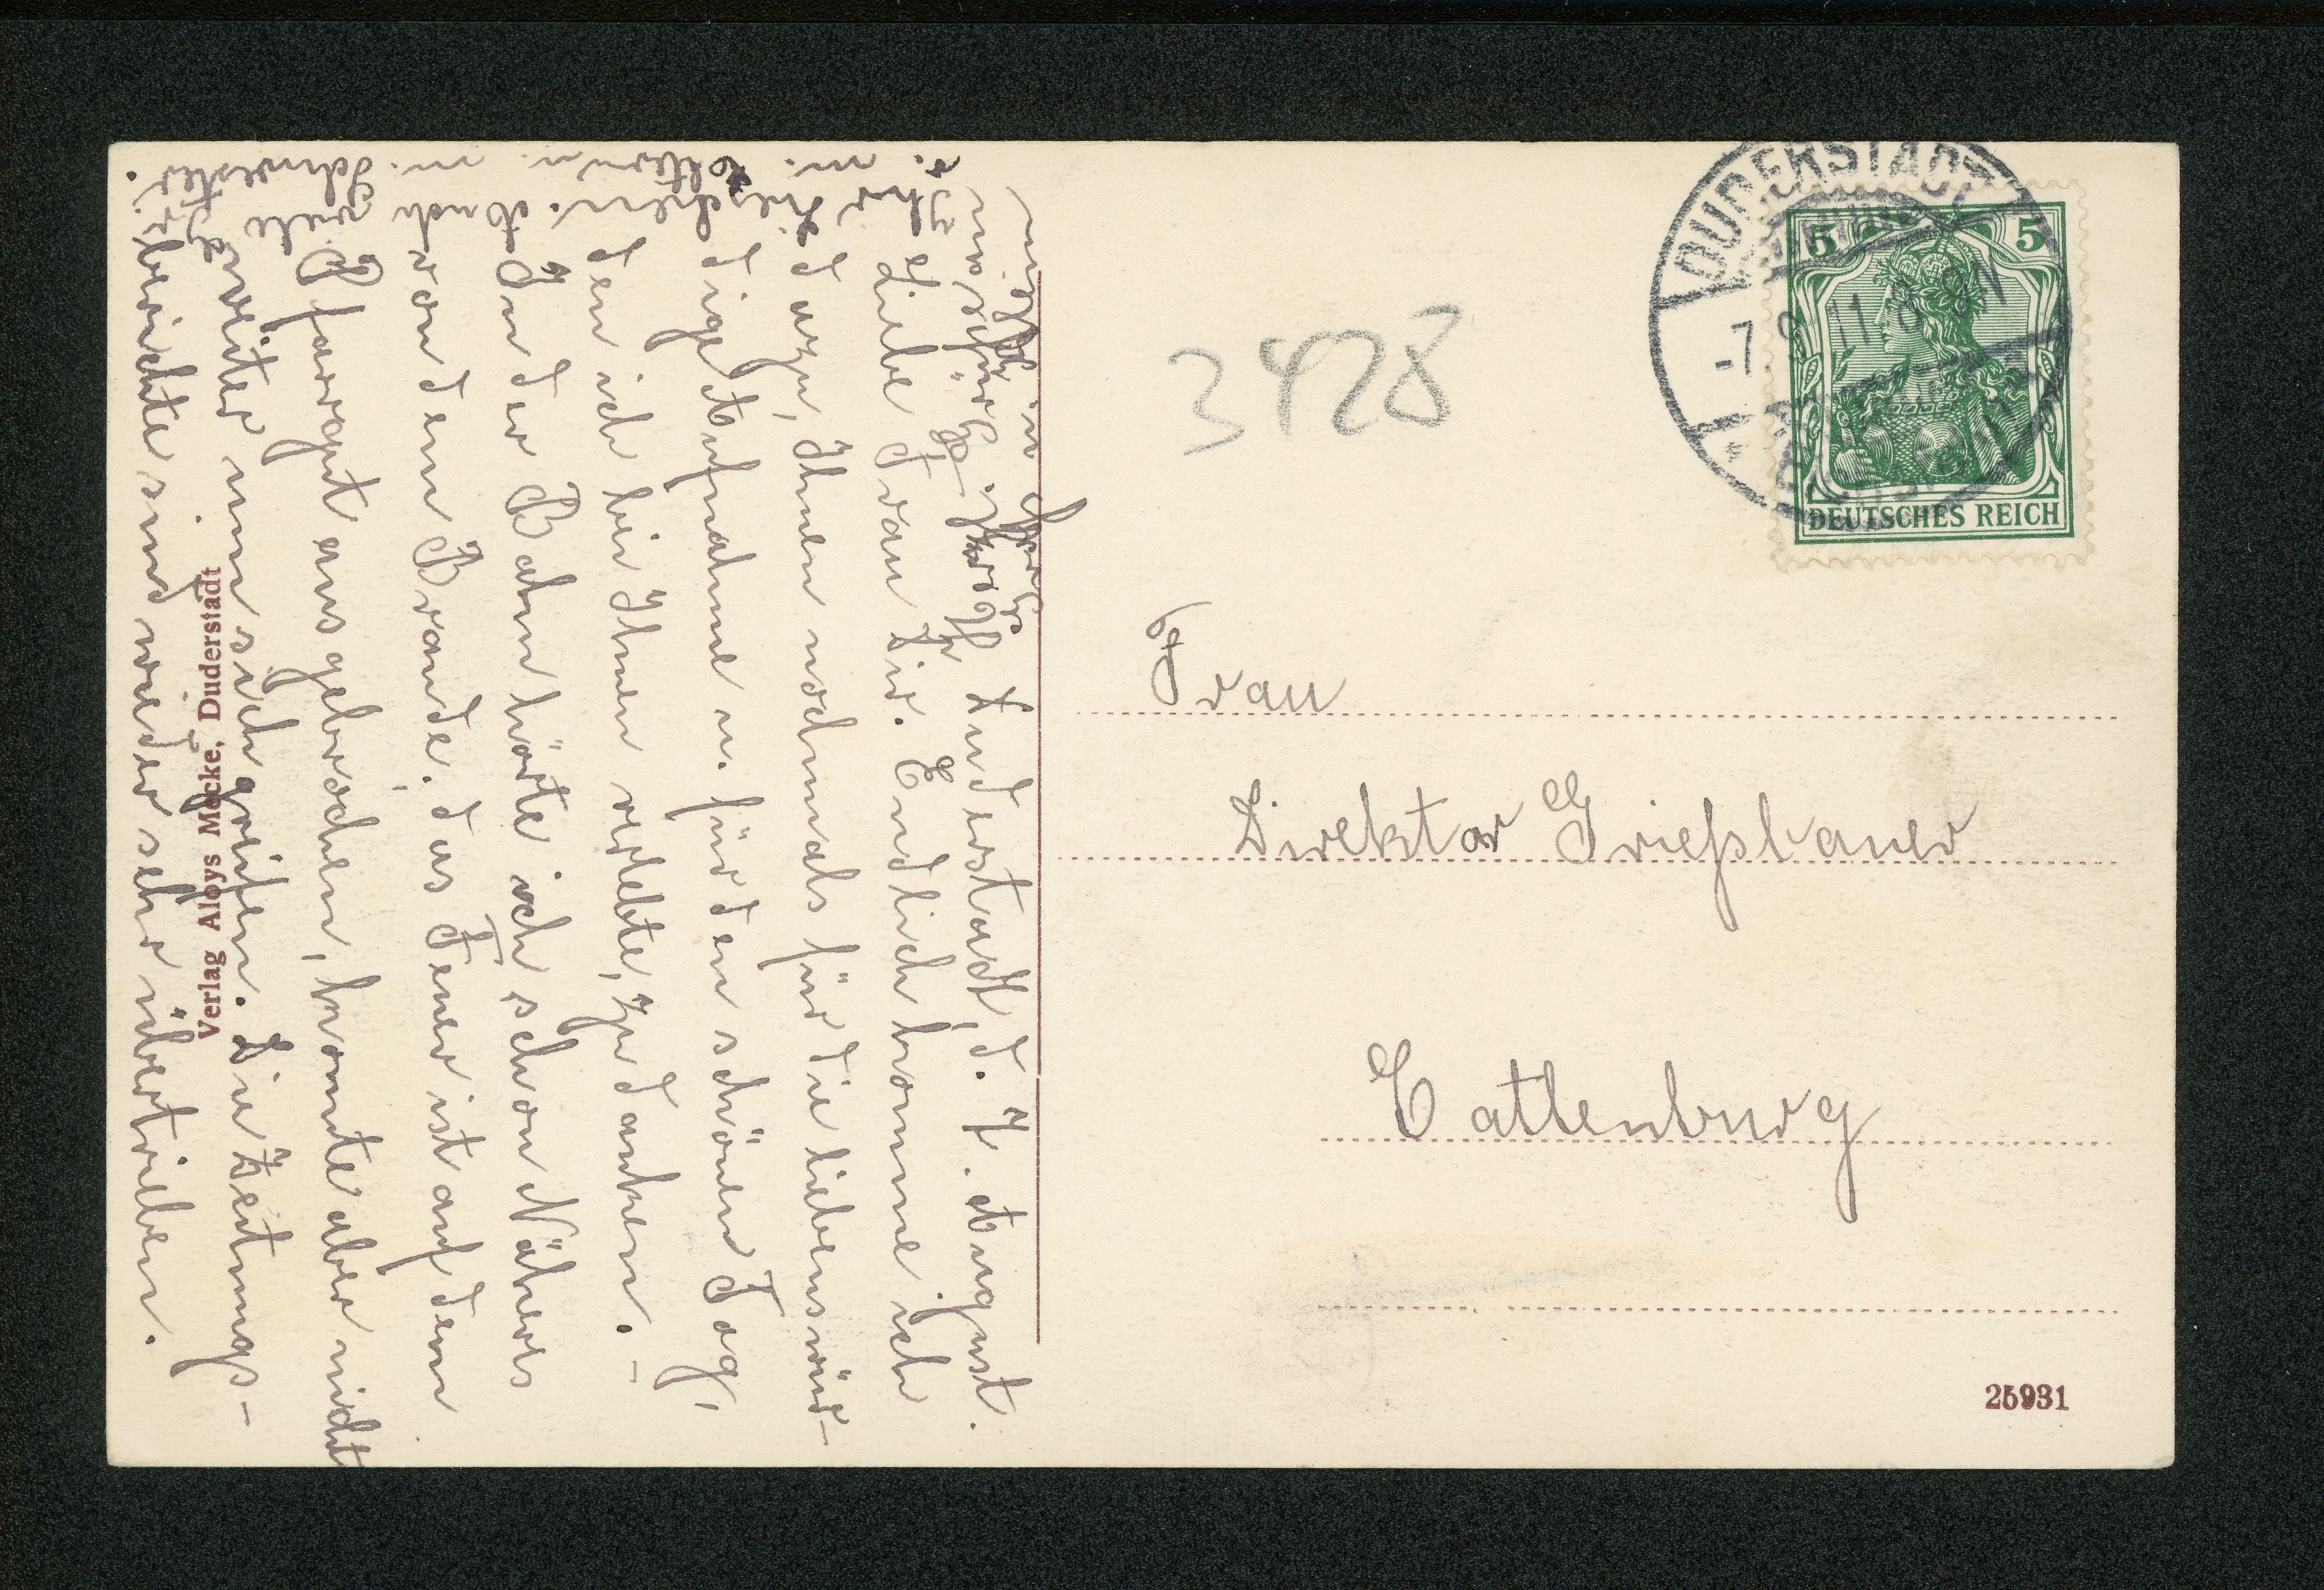 Duderstadt, d. 7. August.
Liebe Frau Dir. Endlich komme ich
dazu, Ihnen nochmals für die liebenswür-
dige Aufnahme u. für den schönen Tag,
den ich bei Ihnen verlebte, zu danken. -
In der Bahn hörte ich schon Näheres
von dem Brande. das Feuer ist auf dem
Pfarrgut ausgebrochen, konnte aber nicht
weiter um sich greifen. Die Zeitungs-
berichte sind wieder sehr übertrieben.
Schwester.
Verlag Aloys Mecke, Duderstadt
3428
DUDERSTADT
-7. 8. 11. 8-9N
5
5
DEUTSCHES REICH
Frau
Direktor Grießbauer
Catlenburg
25931